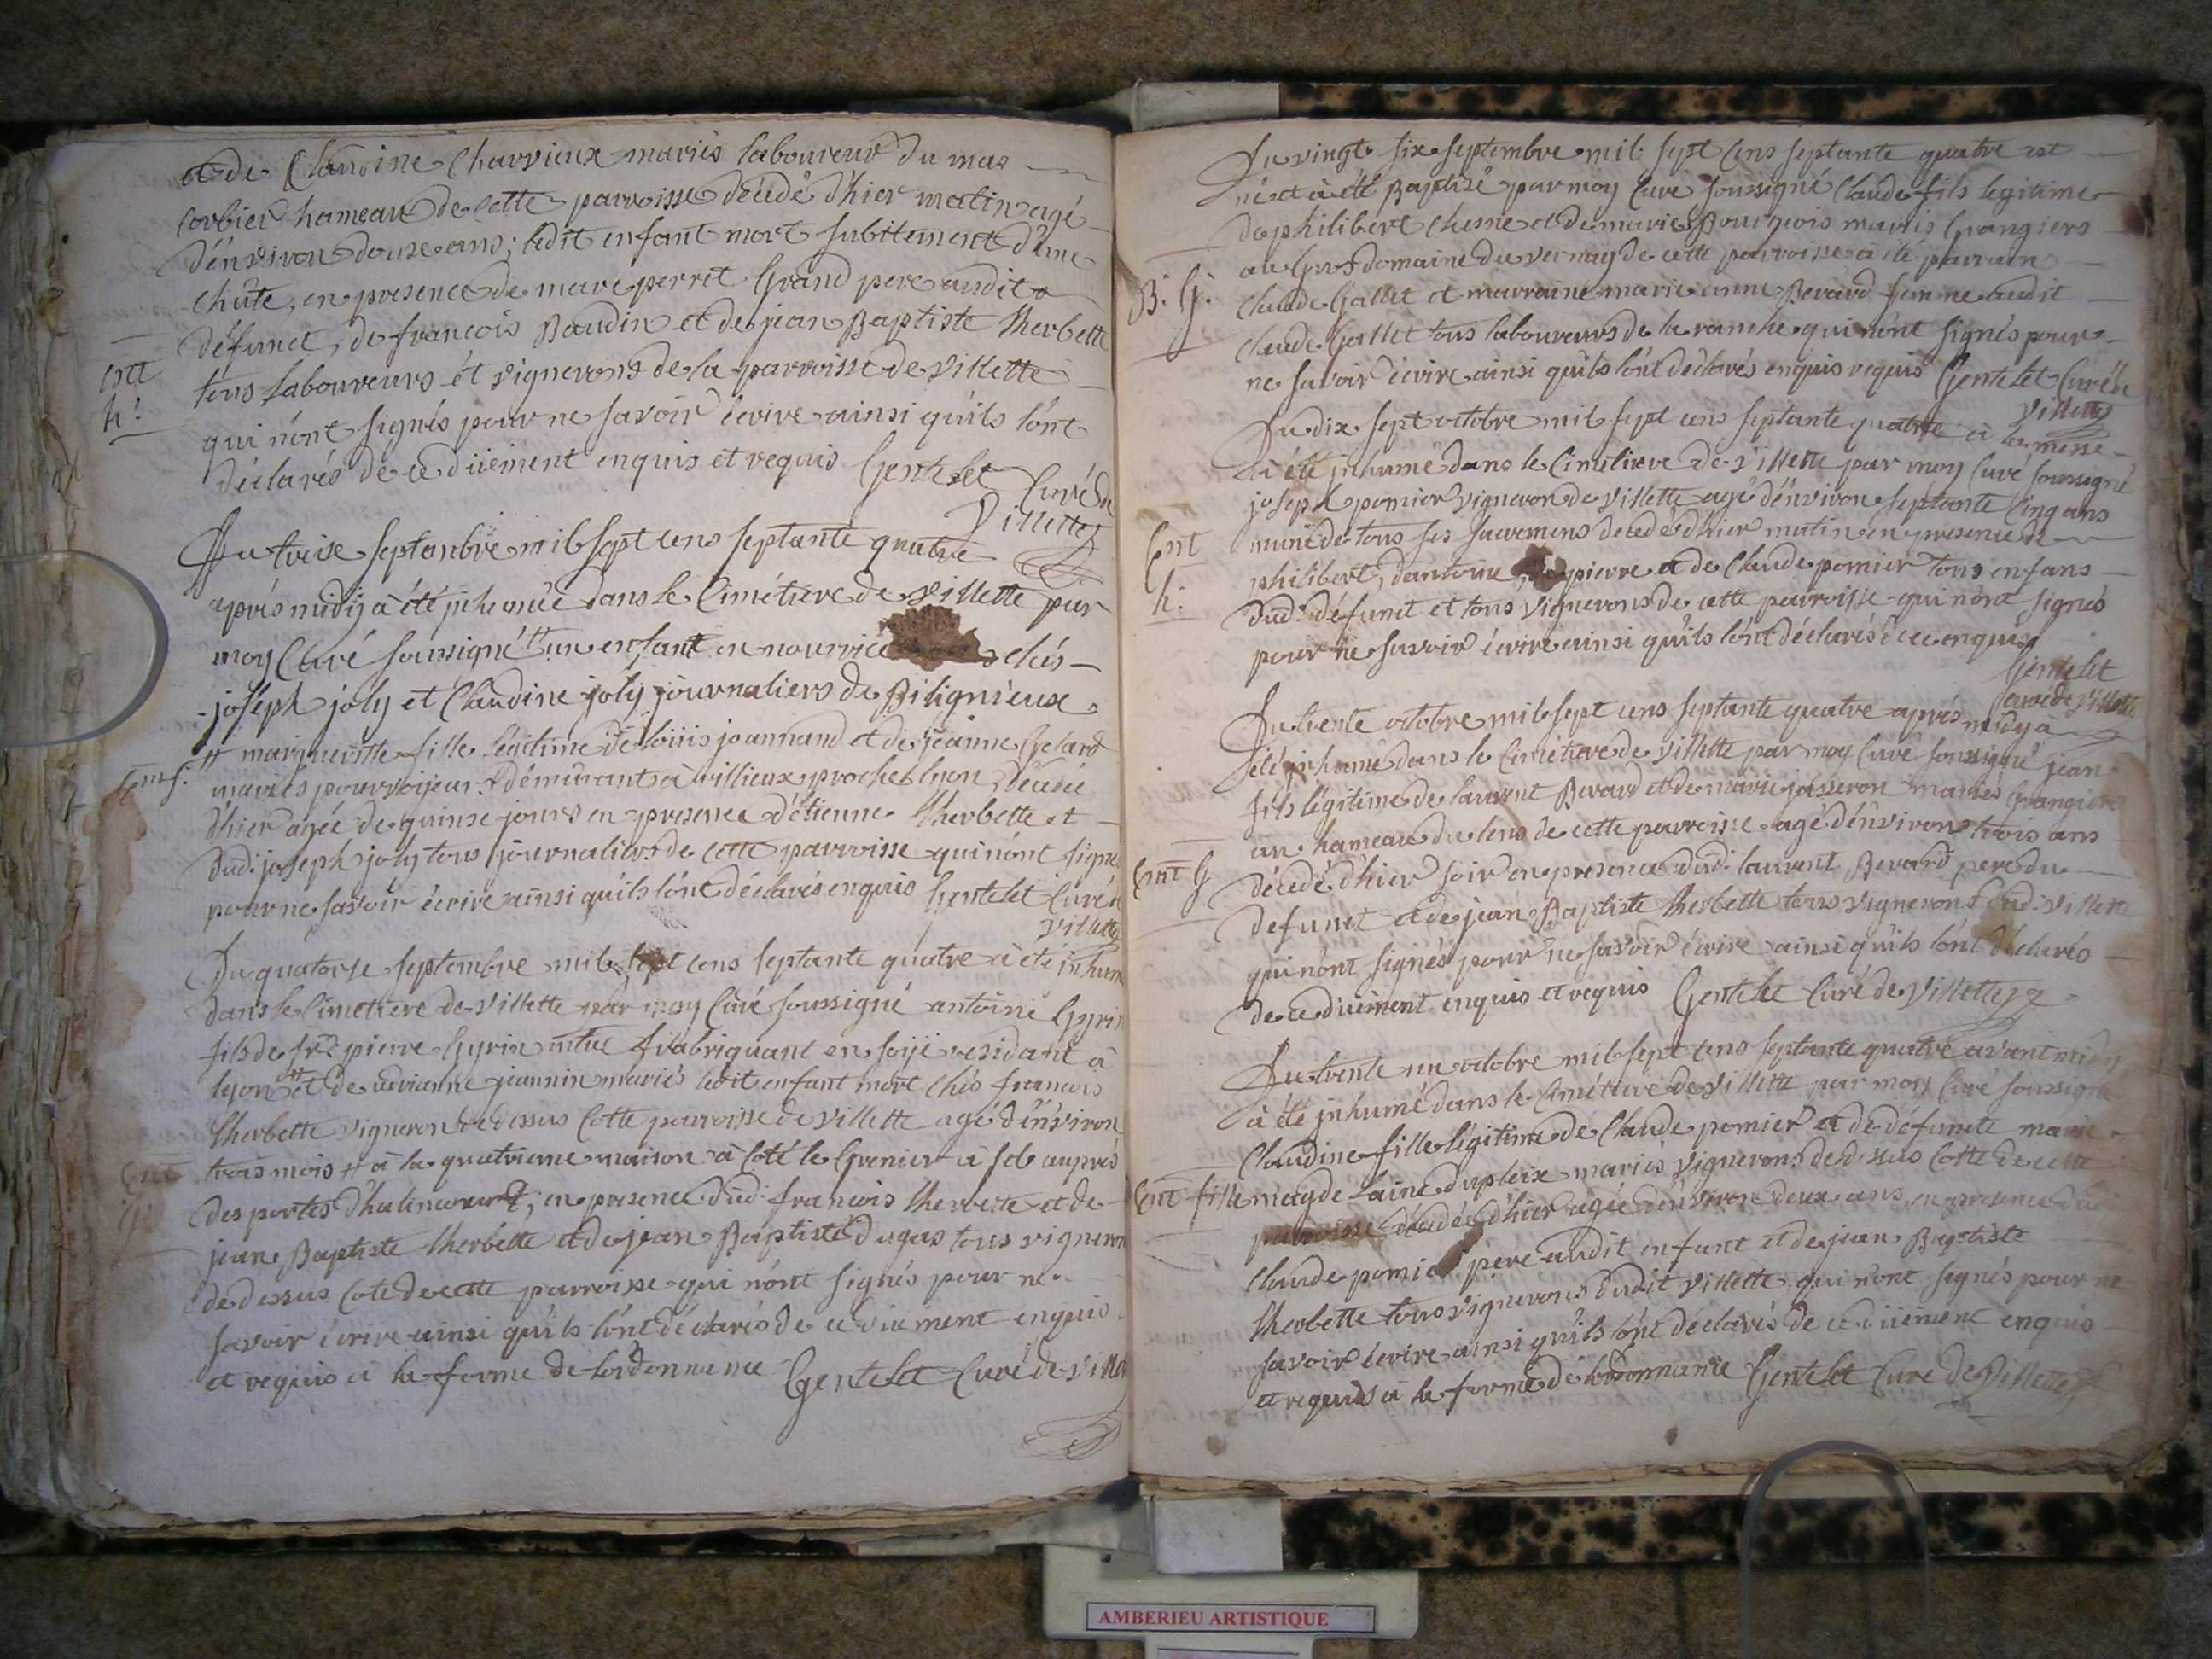 et de Claudine Charvieux mariés laboureur du mas
corbier hameau de cette parroisse décédé d'hier matin agé
d'énviron douze ans; ledit enfant mort subitement d'une
chûte, en presence de marc perret Grand pere audit
défunct, de françois Baudin et de jean Baptiste therbette
tous laboureurs ét vignerons de la parroisse de villette
qui n'ónt signés pour ne savoir écrire ainsi quils lónt
déclarés de ce düement enquis et requis Gentelet Curé de
Villette
ent
h:
Du treise septembre mil sept cens septante quatre
aprés midy à été jnhumée dans le Cimétiere de villette par
moy Curé soussigné # un enfant en nourrice chés
joseph joly et Claudine joly journaliers de Biligniéux
# margueritte fille légitime de loüis joannand et de jeanne
mariés demeurants à villieux proche lyon, décédée
d'hier agée de quinse jours en presence d'étienne therbette et
dud: joseph joly tous journaliers de cette parroisse qui nónt signé
pour ne savoir écrire ainsi quils lónt déclarés enquis Gentelet Curé de
villette
Ent f.
Du quatorse septembre mil sept cens septante quatre à été jnhumé
dans le Cimetiere de villette par moy Curé soussigné antoine Gyrin
fils de pierre Gyrin fabriquant en soÿe residant à
lyon # et de jeannin mariés ledit enfant mort chés francois
therbette vigneron de dessus Cotte parroisse de villette agé d'énviron
trois mois # à la quatrieme maison à coté le Grenier à sel auprés
des portes d'halincourt, en presence dud: francois therbette et de
jean Baptiste therbette et de jean Baptiste dugas tous vignerons
de dessus cote de cette parroisse qui n'ónt signés pour ne
savoir écrire ainsi quils lónt déclarés de ce düement enquis
et requis à la forme de lordonnance Gentelet Curé de Villette
Ent
G:
Du vingt six septembre mil sept cens septante quatre est
né et à été Baptisé par moy Curé soussigné Claude fils legitime
de philibert chesne et de marie Bourgeois mariés Grangiers
au Gros domaine du vernay de cette parroisse à été parrain
Claude Gallet et marraine marie anne Berard femme audit
Claude Gallet tous laboureurs de la ranche qui nónt signés pour
ne savoir écrire ainsi quils lónt déclarés enquis requis Gentelet Curé de
Villette
B: G:
Du dix sept octobre mil sept cens septante quatre à la messe
à été jnhumé dans le Cimetiere de Villette par moy Curé soussigné
joseph pomier vigneron de villette agé d'énviron septante Cinq ans
muni de tous ses sacremens décédé d'hier matin en presence de
philibert, d'antoine, de pierre et de Claude pomier tous enfans
dud: défunct et tous vignerons de cette parroisse qui n'ónt signés
pour ne savoir écrire ainsi quils lónt déclarés de ce enquis
Gentelet
Curé de Villette
Ent
h:
Du trente octobre mil sept cens septante quatre aprés midy à
été jnhumé dans le Cimétiere de villette par moy Curé soussigné jean
fils légitime de laurent Berard et de marie josseron mariés Grangiers
au hameau du lens de cette parroisse agé d'énviron trois ans
décédé d'hier soir en presence dud: laurent Berard pere du
defunct et de jean Baptiste therbette tous vignerons dud: villette
qui n'ónt signés pour ne savoir écrire ainsi quils lónt déclarés
de ce düement enquis et requis Gentelet Curé de Villette
Ent G
Du trente un octobre mil sept cens septante quatre avant midy
à été jnhumé dans le Cimétiere de Villette par moy Curé soussigné
Claudine fille légitime de Claude pomier et de défuncte marie
magdelaine dupleix mariés vignerons de dessus Cotte de cette
parroisse décédée d'hier agée d'énviron deux ans en presence dud
Claude pomier pere audit enfant et de jean Baptiste
therbette tous vignerons dudit villette qui n'ónt signés pour ne
savoir écrire ainsi quils lónt déclarés de ce düement enquis
et requis à la forme de lordonnance Gentelet Curé de Villette
Ent fille
AMBERIEU ARTISTIQUE